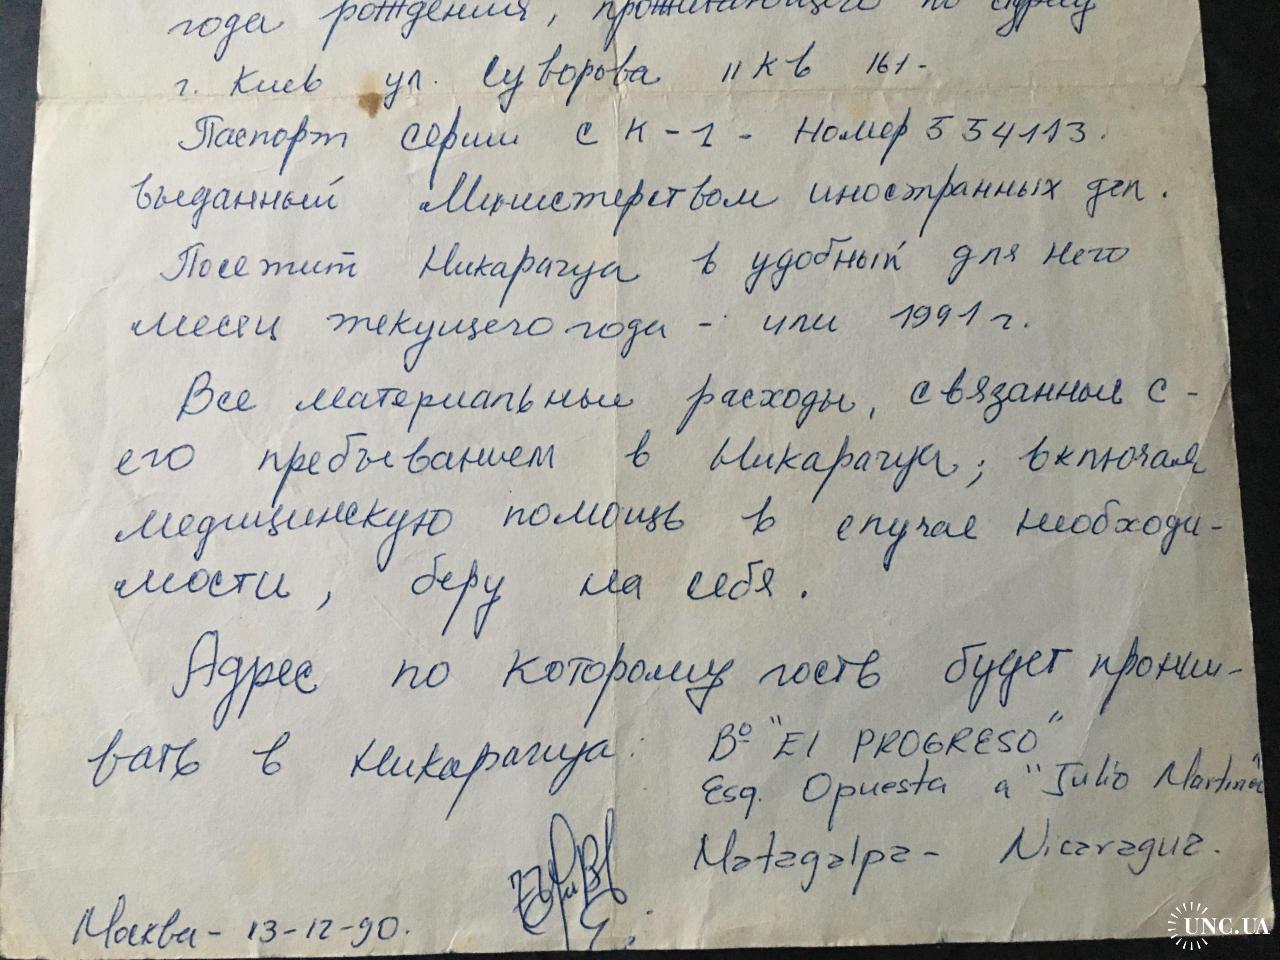 года рождения, проживающего по адресу
г. Киев ул. Суворова 11 кв 161-
Паспорт серии СК-1- номер 554113.
выданный Министерством иностранных дел.
Посетит Никарагуа в удобный для него
месяц текущего года - или 1991 г.
Все материальные расходы, связанные с -
его пребыванием в Никарагуа, включая
медицинскую помощь в случае необходи-
мости, беру на себя.
Адрес по которому гость будет прожи-
вать в Никарагуа:
Bº "El PROGRESO"
Esq. Opuesta a "Julio Martinez
Matagalpa - Nicaragua.
Москва - 13-12-90.
UNC.UA